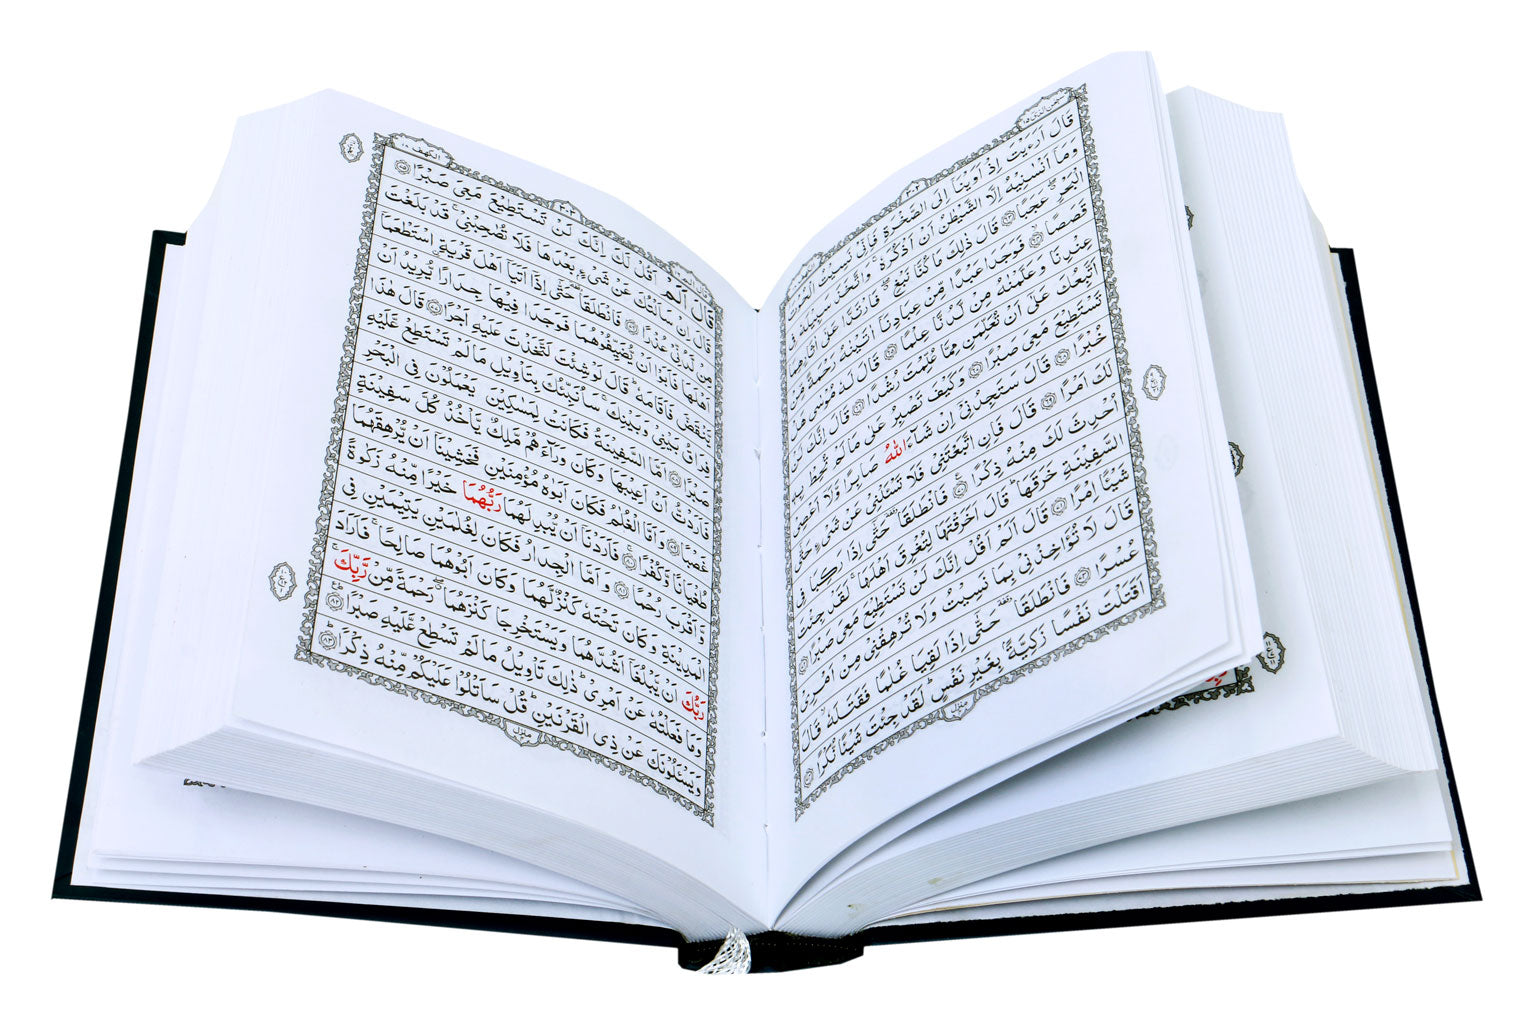 سبحن الذی ۱۵
۳۰۲
قَالَ اَرَءَيْتَ اِذْ اَوَيْنَآ اِلَى الصَّخْرَةِ فَاِنِّيْ نَسِيْتُ الْحُوْتَ
وَمَآ اَنْسٰنِيْهُ اِلَّا الشَّيْطٰنُ اَنْ اَذْكُرَهٗ ۚ وَاتَّخَذَ سَبِيْلَهٗ فِى
الْبَحْرِ ۖ عَجَبًا ﴿۶۳﴾ قَالَ ذٰلِكَ مَا كُنَّا نَبْغِ ۖ فَارْتَدَّا عَلٰٓى اٰثَارِهِمَا
قَصَصًا ﴿۶۴﴾ فَوَجَدَا عَبْدًا مِّنْ عِبَادِنَآ اٰتَيْنٰهُ رَحْمَةً مِّنْ
عِنْدِنَا وَعَلَّمْنٰهُ مِنْ لَّدُنَّا عِلْمًا ﴿۶۵﴾ قَالَ لَهٗ مُوْسٰى هَلْ
اَتَّبِعُكَ عَلٰٓى اَنْ تُعَلِّمَنِ مِمَّا عُلِّمْتَ رُشْدًا ﴿۶۶﴾ قَالَ اِنَّكَ لَنْ
تَسْتَطِيْعَ مَعِيَ صَبْرًا ﴿۶۷﴾ وَكَيْفَ تَصْبِرُ عَلٰى مَا لَمْ تُحِطْ بِهٖ
خُبْرًا ﴿۶۸﴾ قَالَ سَتَجِدُنِيْٓ اِنْ شَآءَ اللّٰهُ صَابِرًا وَّلَآ اَعْصِيْ
لَكَ اَمْرًا ﴿۶۹﴾ قَالَ فَاِنِ اتَّبَعْتَنِيْ فَلَا تَسْـَٔلْنِيْ عَنْ شَيْءٍ حَتّٰٓى
اُحْدِثَ لَكَ مِنْهُ ذِكْرًا ﴿۷۰﴾ فَانْطَلَقَا حَتّٰٓى اِذَا رَكِبَا فِى
السَّفِيْنَةِ خَرَقَهَا ؕ قَالَ اَخَرَقْتَهَا لِتُغْرِقَ اَهْلَهَا ۚ لَقَدْ جِئْتَ
شَيْـًٔا اِمْرًا ﴿۷۱﴾ قَالَ اَلَمْ اَقُلْ اِنَّكَ لَنْ تَسْتَطِيْعَ مَعِيَ صَبْرًا ﴿۷۲﴾
قَالَ لَا تُؤَاخِذْنِيْ بِمَا نَسِيْتُ وَلَا تُرْهِقْنِيْ مِنْ اَمْرِيْ
عُسْرًا ﴿۷۳﴾ فَانْطَلَقَا حَتّٰٓى اِذَا لَقِيَا غُلٰمًا فَقَتَلَهٗ ۙ قَالَ
اَقَتَلْتَ نَفْسًا زَكِيَّةً ۢ بِغَيْرِ نَفْسٍ ؕ لَقَدْ جِئْتَ شَيْـًٔا نُكْرًا ﴿۷۴﴾
منزل
الكهف ۱۸
۳۰۳
قال الم
قَالَ اَلَمْ اَقُلْ لَّكَ اِنَّكَ لَنْ تَسْتَطِيْعَ مَعِيَ صَبْرًا ﴿۷۵﴾
قَالَ اِنْ سَاَلْتُكَ عَنْ شَيْءٍ ۢ بَعْدَهَا فَلَا تُصٰحِبْنِيْ ۚ قَدْ بَلَغْتَ
مِنْ لَّدُنِّيْ عُذْرًا ﴿۷۶﴾ فَانْطَلَقَا حَتّٰٓى اِذَآ اَتَيَآ اَهْلَ قَرْيَةِ ۨ اسْتَطْعَمَآ
اَهْلَهَا فَاَبَوْا اَنْ يُّضَيِّفُوْهُمَا فَوَجَدَا فِيْهَا جِدَارًا يُّرِيْدُ اَنْ
يَّنْقَضَّ فَاَقَامَهٗ ؕ قَالَ لَوْ شِئْتَ لَتَّخَذْتَ عَلَيْهِ اَجْرًا ﴿۷۷﴾ قَالَ هٰذَا
فِرَاقُ بَيْنِيْ وَبَيْنِكَ ۚ سَاُنَبِّئُكَ بِتَاْوِيْلِ مَا لَمْ تَسْتَطِعْ عَّلَيْهِ
صَبْرًا ﴿۷۸﴾ اَمَّا السَّفِيْنَةُ فَكَانَتْ لِمَسٰكِيْنَ يَعْمَلُوْنَ فِى الْبَحْرِ
فَاَرَدْتُّ اَنْ اَعِيْبَهَا وَكَانَ وَرَآءَهُمْ مَّلِكٌ يَّاْخُذُ كُلَّ سَفِيْنَةٍ
غَصْبًا ﴿۷۹﴾ وَاَمَّا الْغُلٰمُ فَكَانَ اَبَوٰهُ مُؤْمِنَيْنِ فَخَشِيْنَآ اَنْ يُّرْهِقَهُمَا
طُغْيَانًا وَّكُفْرًا ﴿۸۰﴾ فَاَرَدْنَآ اَنْ يُّبْدِلَهُمَا رَبُّهُمَا خَيْرًا مِّنْهُ زَكٰوةً
وَّاَقْرَبَ رُحْمًا ﴿۸۱﴾ وَاَمَّا الْجِدَارُ فَكَانَ لِغُلٰمَيْنِ يَتِيْمَيْنِ فِى
الْمَدِيْنَةِ وَكَانَ تَحْتَهٗ كَنْزٌ لَّهُمَا وَكَانَ اَبُوْهُمَا صَالِحًا ۚ فَاَرَادَ
رَبُّكَ اَنْ يَّبْلُغَآ اَشُدَّهُمَا وَيَسْتَخْرِجَا كَنْزَهُمَا ۖ رَحْمَةً مِّنْ رَّبِّكَ ۚ
وَمَا فَعَلْتُهٗ عَنْ اَمْرِيْ ؕ ذٰلِكَ تَاْوِيْلُ مَا لَمْ تَسْطِعْ عَّلَيْهِ صَبْرًا ﴿۸۲﴾
وَيَسْـَٔلُوْنَكَ عَنْ ذِى الْقَرْنَيْنِ ؕ قُلْ سَاَتْلُوْا عَلَيْكُمْ مِّنْهُ ذِكْرًا ﴿۸۳﴾
منزل